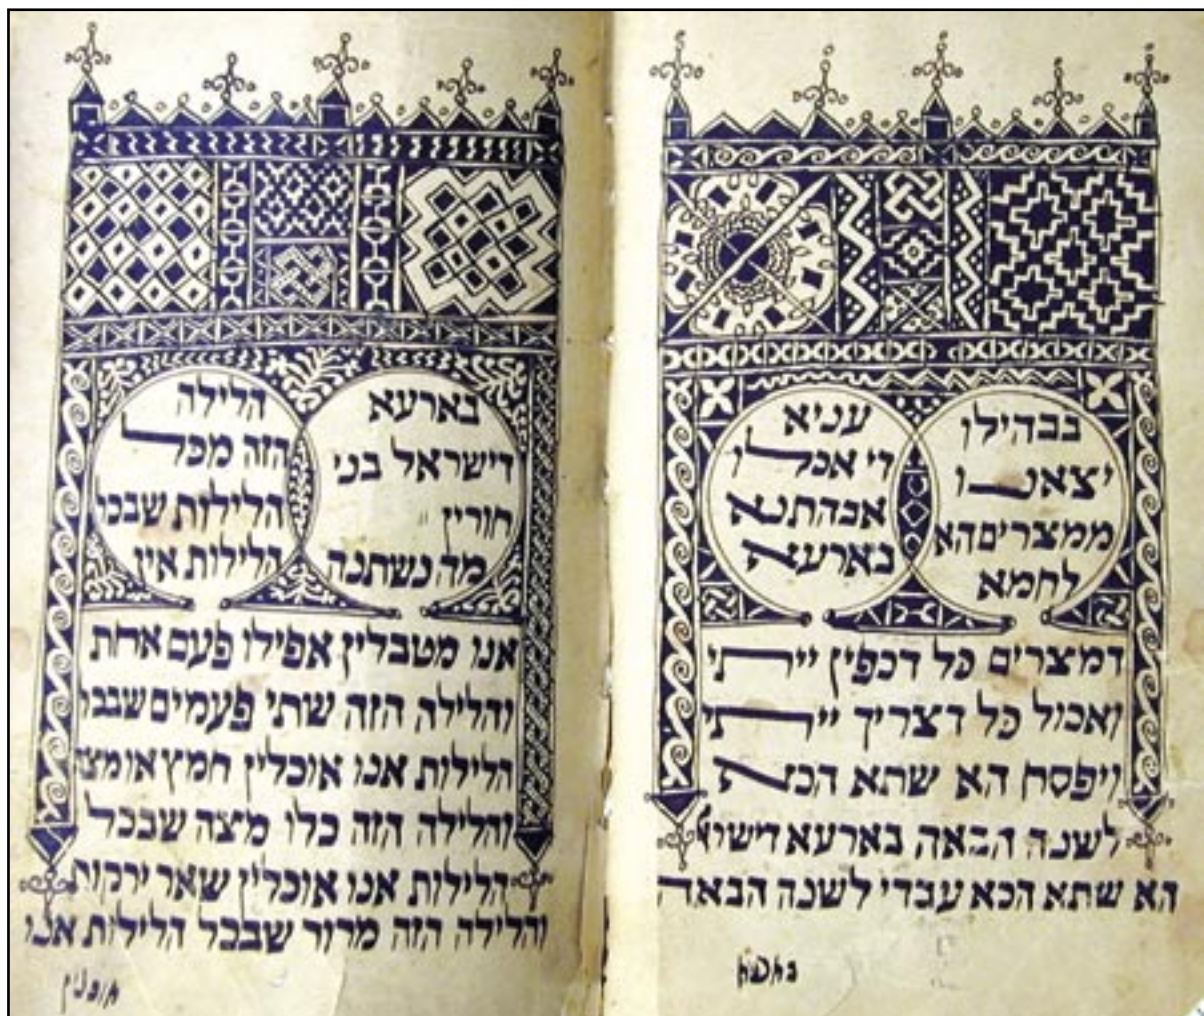 בבהילו
יצאנו
ממצרים הא
לחמא
עניא
די אכלו
אבהתנא
בארעא
דמצרים כל דכפין ייתי
ואכול כל דצריך ייתי
ויפסח הא שתא הכא
לשנה הבאה בארעא
הא שתא הכא עבדי לשנה הבאה
בארעא
דישראל בני
חורין
מה נשתנה
הלילה
הזה מכל
הלילות שבכל
הלילות אין
אנו מטבלין אפילו פעם אחת
והלילה הזה שתי פעמים שבכל
הלילות אנו אוכלין חמץ או מצה
והלילה הזה כלו מצה שבכל
הלילות אנו אוכלין שאר ירקות
והלילה הזה מרור שבכל הלילות אנו
אוכלין